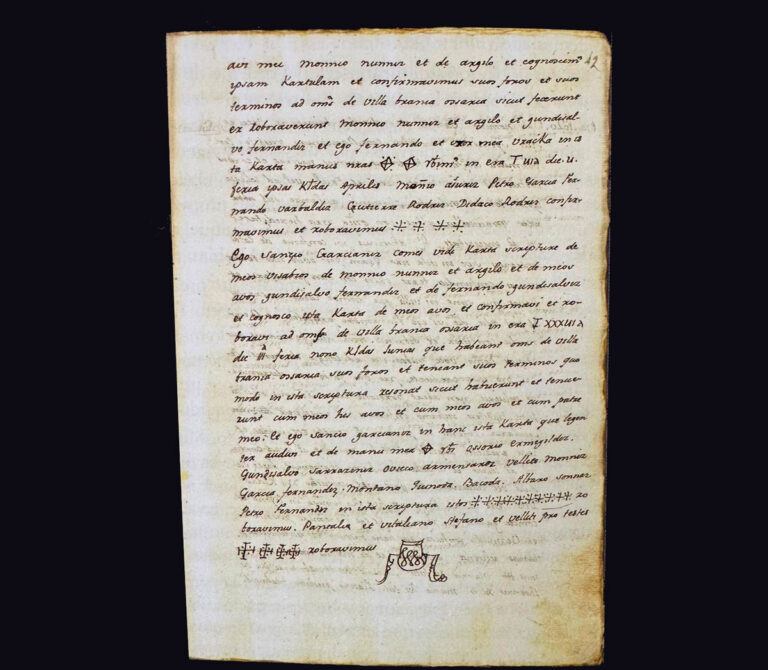 42
avi mei monnio nunniz et de argilo et cognoscim9
ipsam Kartulam et confirmavimus suos foros et suos
terminos ad oms de villa brania ossaria sicut fecerunt
et roboraverunt monnio nunniz et argilo et gundisal-
vo fernandiz et ego fernando et uxor mea Urraka in is
ta Karta manus nras in era die
feria ipsas Klds Aprilis Petro Garcia fer-
nando Gutierre Rodriz Didaco Rodriz confir-
mavimus et roboravimus
Ego Sanzio Garcianiz comes vidi Karta scripture de
meos visabios de monnio nunniz et argilo et de meos
avos gundisalvo fernandiz et de fernando gundisalviz
et cognosco ista Karta de meos avos et confirmavi et ro-
boravi ad oms de villa brania ossaria in era TXXXUIIII
die III feria nono Klds Iunias que habeant oms de villa
brania ossaria suos foros et teneant suos terminos quo
modo in ista scriptura resonat sicut habuerunt et tenue-
runt cum meos bis avos et cum meos avos et cum patre
meo. Et ego Sancio garcianiz in hanc ista Karta que legen
ter audivi et de manu mea Ossorio Ermegildez.
Gundisalvo Sarraziniz Ovecco armentaroz Vellite monniz
Garcia fernandez. Montano Bacoda. Alvaro
Petro Fernandez in ista scriptura istos ro
boravimus. Pansalia et vitaliano Stefano et velliti pro testes
roboravimus